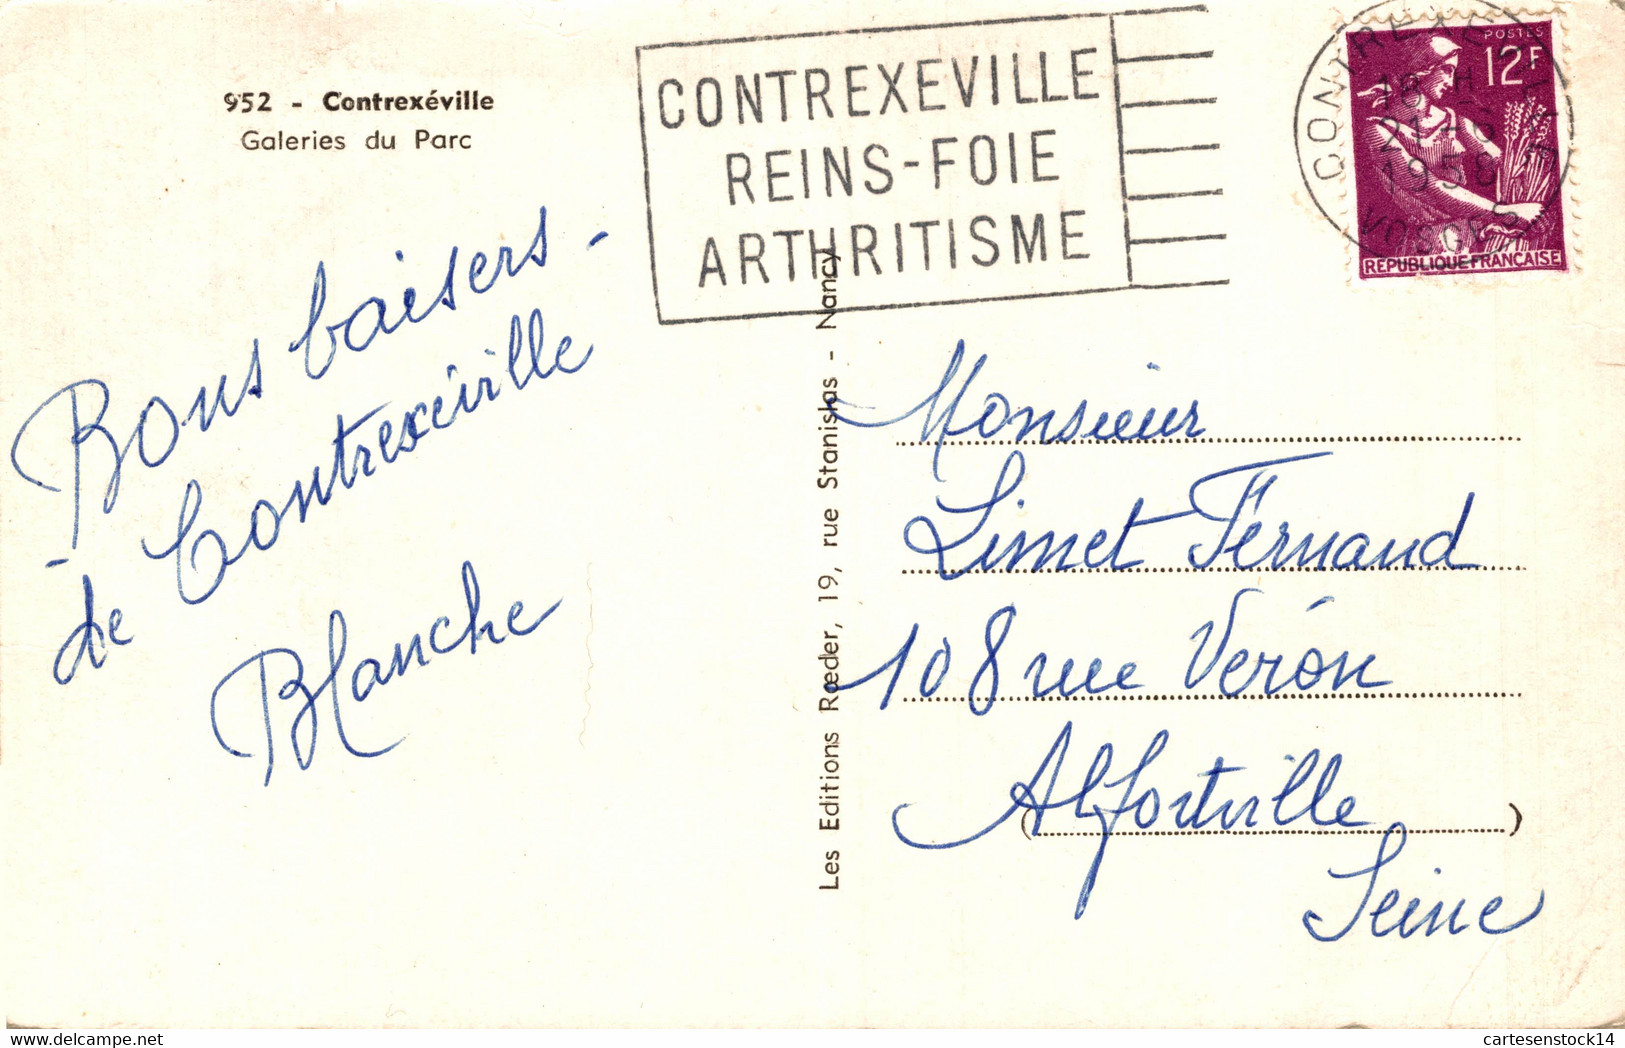 952 - Contrexéville
Galeries du Parc
CONTREXEVILLE
REINS-FOIE
ARTHRITISME
CONTREXEVILLE
18 H
21 -6
1958
VOSGES
POSTES
12F
REPUBLIQUE FRANÇAISE
Bons baisers -
- de Contrexéville
Blanche
Les Editions Rœder, 19, rue Stanislas - Nancy
Monsieur
Limet Fernand
108 rue Verón
Alfortville
Seine
cartesenstock14